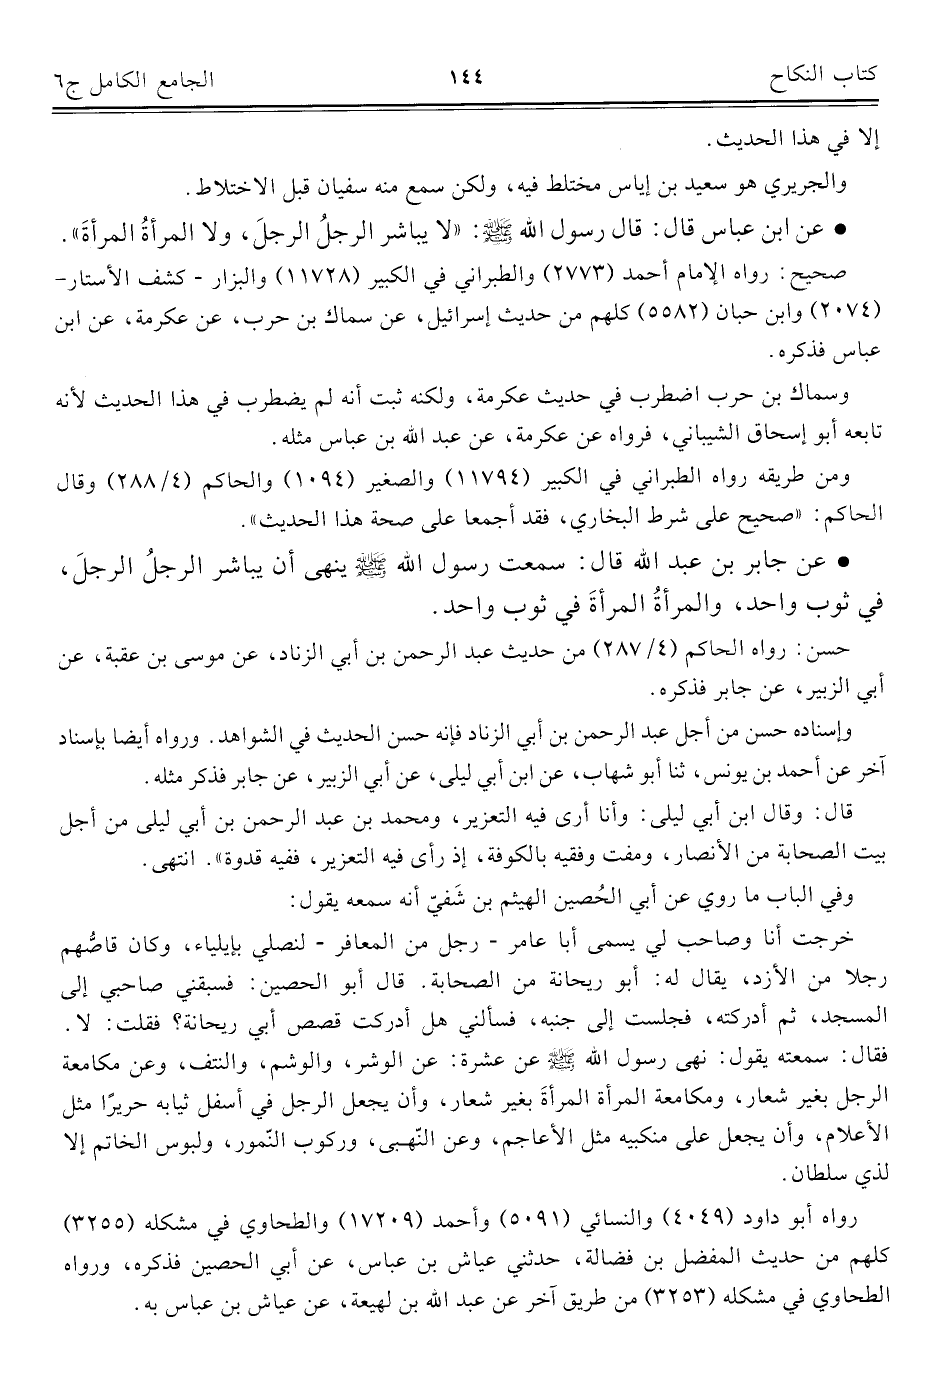 كتاب النكاح ١٤٤ الجامع الكامل ج٦
إلا في هذا الحديث.
والجريري هو سعيد بن إياس مختلط فيه، ولكن سمع منه سفيان قبل الاختلاط.
• عن ابن عباس قال: قال رسول الله ﷺ: «لا يباشر الرجلُ الرجلَ، ولا المرأةُ المرأةَ».
صحيح: رواه الإمام أحمد (٢٧٧٣) والطبراني في الكبير (١١٧٢٨) والبزار - كشف الأستار-
(٢٠٧٤) وابن حبان (٥٥٨٢) كلهم من حديث إسرائيل، عن سماك بن حرب، عن عكرمة، عن ابن
عباس فذكره.
وسماك بن حرب اضطرب في حديث عكرمة، ولكنه ثبت أنه لم يضطرب في هذا الحديث لأنه
تابعه أبو إسحاق الشيباني، فرواه عن عكرمة، عن عبد الله بن عباس مثله.
ومن طريقه رواه الطبراني في الكبير (١١٧٩٤) والصغير (١٠٩٤) والحاكم (٢٨٨/٤) وقال
الحاكم: «صحيح على شرط البخاري، فقد أجمعا على صحة هذا الحديث».
• عن جابر بن عبد الله قال: سمعت رسول الله ﷺ ينهى أن يباشر الرجلُ الرجلَ،
في ثوب واحد، والمرأةُ المرأةَ في ثوب واحد.
حسن: رواه الحاكم (٢٨٧/٤) من حديث عبد الرحمن بن أبي الزناد، عن موسى بن عقبة، عن
أبي الزبير، عن جابر فذكره.
وإسناده حسن من أجل عبد الرحمن بن أبي الزناد فإنه حسن الحديث في الشواهد. ورواه أيضا بإسناد
آخر عن أحمد بن يونس، ثنا أبو شهاب، عن ابن أبي ليلى، عن أبي الزبير، عن جابر فذكر مثله.
قال: وقال ابن أبي ليلى: وأنا أرى فيه التعزير، ومحمد بن عبد الرحمن بن أبي ليلى من أجل
بيت الصحابة من الأنصار، ومفت وفقيه بالكوفة، إذ رأى فيه التعزير، ففيه قدوة». انتهى.
وفي الباب ما روي عن أبي الحُصين الهيثم بن شَفيّ أنه سمعه يقول:
خرجت أنا وصاحب لي يسمى أبا عامر - رجل من المعافر - لنصلي بإيلياء، وكان قاصُّهم
رجلا من الأزد، يقال له: أبو ريحانة من الصحابة. قال أبو الحصين: فسبقني صاحبي إلى
المسجد، ثم أدركته، فجلست إلى جنبه، فسألني هل أدركت قصص أبي ريحانة؟ فقلت: لا.
فقال: سمعته يقول: نهى رسول الله ﷺ عن عشرة: عن الوشر، والوشم، والنتف، وعن مكامعة
الرجل بغير شعار، ومكامعة المرأة المرأةَ بغير شعار، وأن يجعل الرجل في أسفل ثيابه حريرًا مثل
الأعلام، وأن يجعل على منكبيه مثل الأعاجم، وعن النّهبى، وركوب النّمور، ولبوس الخاتم إلا
لذي سلطان.
رواه أبو داود (٤٠٤٩) والنسائي (٥٠٩١) وأحمد (١٧٢٠٩) والطحاوي في مشكله (٣٢٥٥)
كلهم من حديث المفضل بن فضالة، حدثني عياش بن عباس، عن أبي الحصين فذكره، ورواه
الطحاوي في مشكله (٣٢٥٣) من طريق آخر عن عبد الله بن لهيعة، عن عياش بن عباس به.